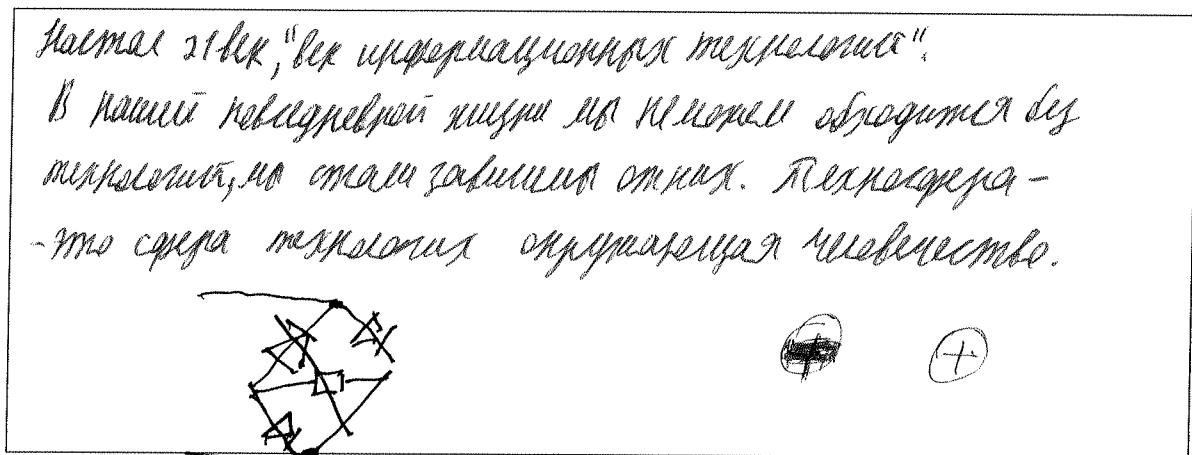 Настал 21 век, "век информационных технологий".
В нашей повседневной жизни мы неможем обходится без
технологий, мы стали зависимы отних. Техносфера -
- это сфера технологих окружающая человечество.